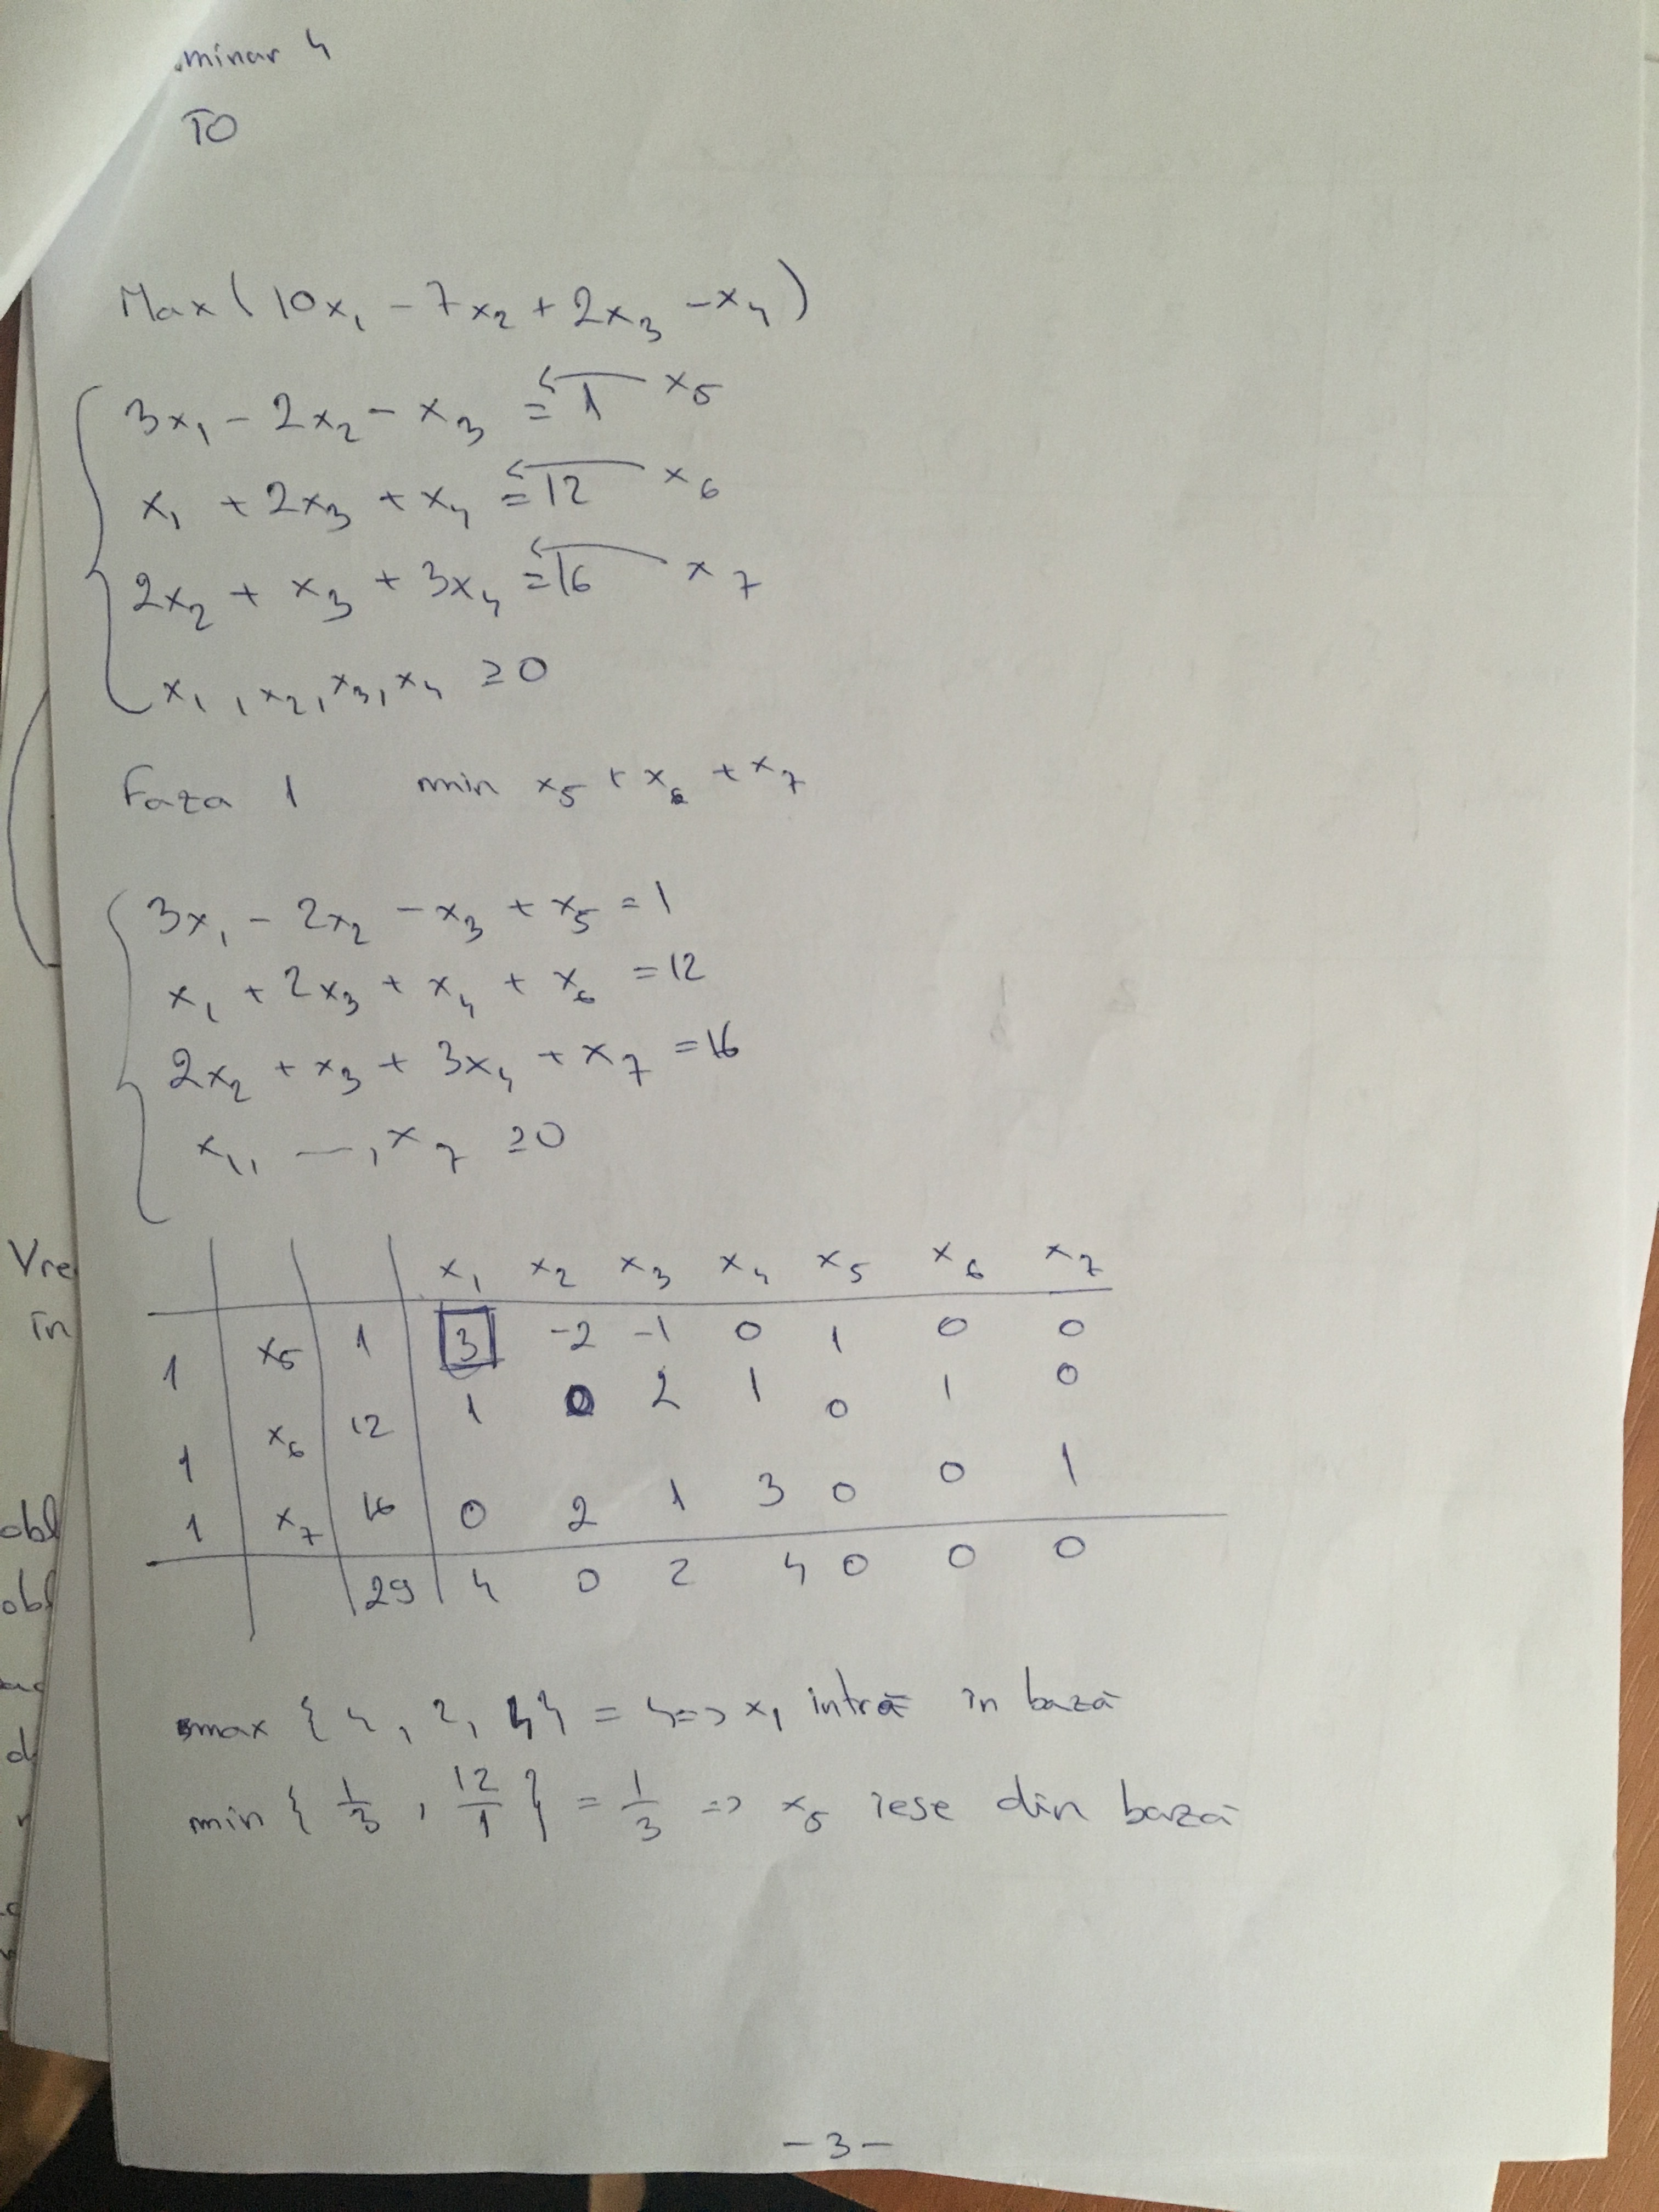 minar 4
TO
Max ( 10x₁ - 7x₂ + 2x₃ - x₄ )
3x₁ - 2x₂ - x₃ = 1 x₅
x₁ + 2x₃ + x₄ = 12 x₆
2x₂ + x₃ + 3x₄ = 16 x₇
x₁, x₂, x₃, x₄ ≥ 0
Faza 1 min x₅ + x₆ + x₇
3x₁ - 2x₂ - x₃ + x₅ = 1
x₁ + 2x₃ + x₄ + x₆ = 12
2x₂ + x₃ + 3x₄ + x₇ = 16
x₁, —, x₇ ≥ 0
x₁ x₂ x₃ x₄ x₅ x₆ x₇
1 x₅ 1 3 -2 -1 0 1 0 0
1 x₆ 12 1 0 2 1 0 1 0
1 x₇ 16 0 2 1 3 0 0 1
29 4 0 2 4 0 0 0
max { 4, 2, 4 } = 4 => x₁ intră în bază
min { 1/3, 12/1 } = 1/3 => x₅ iese din bază
- 3 -
Vre
în
obl
obl
d